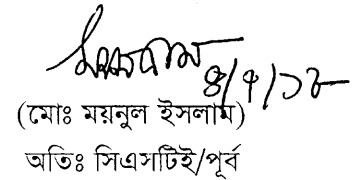 ৪/৭/১৮
(মোঃ ময়নুল ইসলাম)
অতিঃ সিএসটিই/পূর্ব